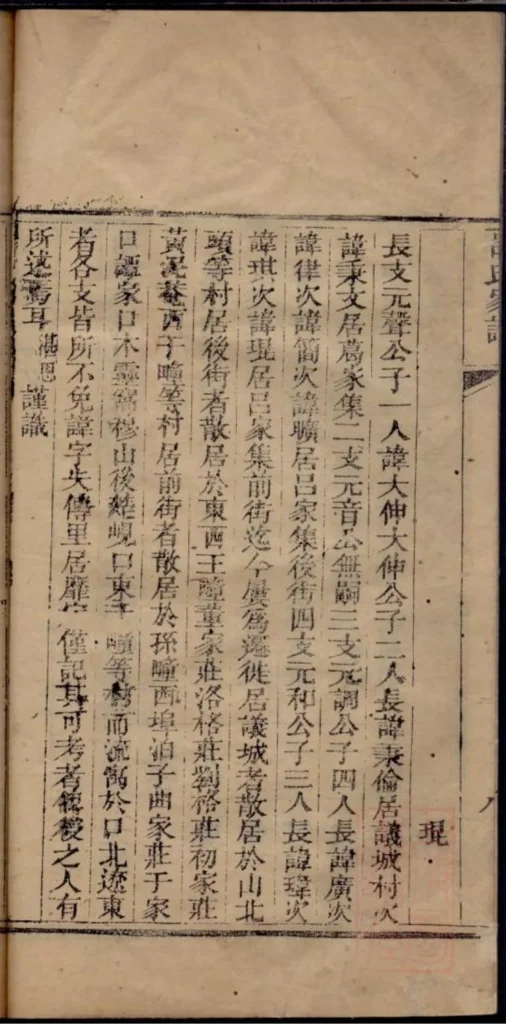 氏家譜
八
琨
長支元聲公子一人諱大伸大伸公子二人長諱秉倫居議城村次
諱秉文居葛家集二支元音公無嗣三支元調公子四人長諱廣次
諱律次諱簡次諱曠居呂家集後街四支元和公子三人長諱瑋次
諱琪次諱琨居呂家集前街迄今屢爲遷徙居議城者散居於山北
頭等村居後街者散居於東西王疃董家莊洛格莊劉格莊初家莊
黃泥菴西于疃等村居前街者散居於孫疃西埠泊子曲家莊于家
口譚家口木靈窩穆山後 峴口東于疃等村而流寓於口北遼東
者各支皆所不免諱字失傳里居靡定僅記其可考者 後之人有
所述焉耳 湛恩 謹識